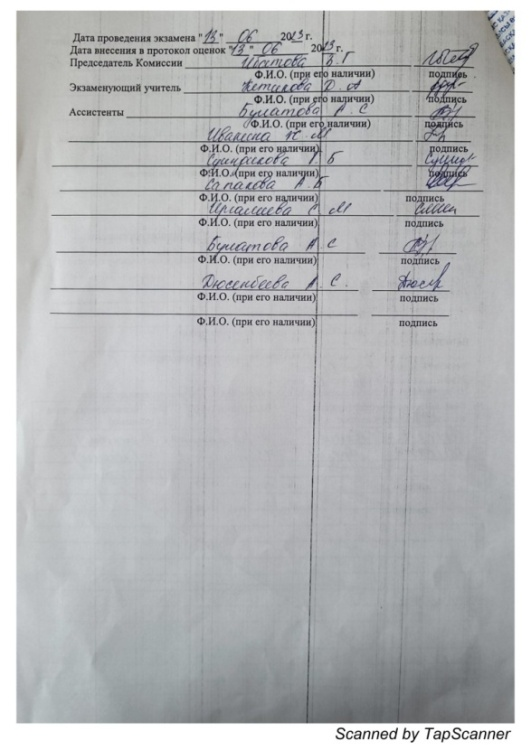 Дата проведения экзамена "13" 06 2023 г.
Дата внесения в протокол оценок "13" 06 2023 г.
Председатель Комиссии Б. Г
Ф.И.О. (при его наличии) подпись
Экзаменующий учитель Д. А
Ф.И.О. (при его наличии) подпись
Ассистенты Булатова А. С
Ф.И.О. (при его наличии) подпись
Ивакина Н М
Ф.И.О. (при его наличии) подпись
Б
Ф.И.О. (при его наличии) подпись
Сапакова А. Б
Ф.И.О. (при его наличии) подпись
Иргалиева С М
Ф.И.О. (при его наличии) подпись
Булатова А С
Ф.И.О. (при его наличии) подпись
Дюсенбеева А. С.
Ф.И.О. (при его наличии) подпись
Ф.И.О. (при его наличии) подпись
Scanned by TapScanner